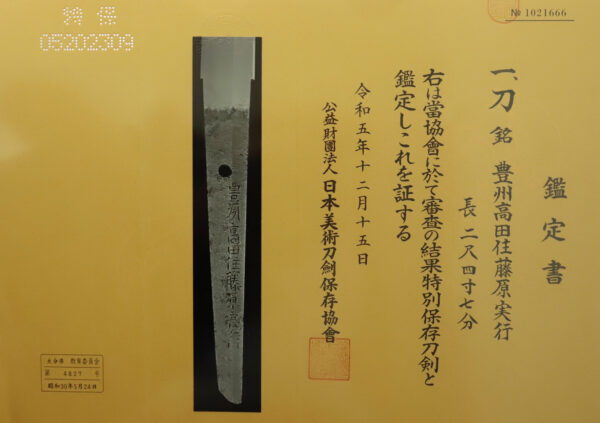 № 1021666
鑑定書
一、刀 銘 豊州高田住藤原実行
長 二尺四寸七分
右は當協會に於て審査の結果特別保存刀劍と
鑑定しこれを証する
令和五年十二月十五日
公益財團法人 日本美術刀劍保存協會
特保
05202309
豊州高田住藤原實行
大分県 教育委員会
第 4827 号
昭和30年5月24日